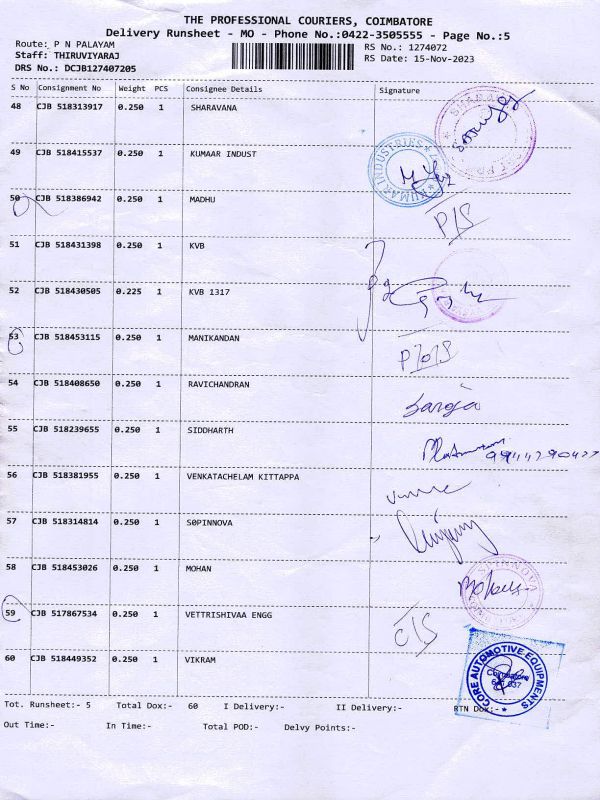 THE PROFESSIONAL COURIERS, COIMBATORE
Delivery Runsheet - MO - Phone No.:0422-3505555 - Page No.:5
Route: P N PALAYAM
Staff: THIRUVIYARAJ
DRS No.: DCJB127407205
RS No.: 1274072
RS Date: 15-Nov-2023
S No Consignment No Weight PCS Consignee Details Signature
48 CJB 518313917 0.250 1 SHARAVANA
49 CJB 518415537 0.250 1 KUMAAR INDUST
KUMAR INDUSTRIES
50 CJB 518386942 0.250 1 MADHU
P/S
51 CJB 518431398 0.250 1 KVB
52 CJB 518430505 0.225 1 KVB 1317
53 CJB 518453115 0.250 1 MANIKANDAN
54 CJB 518408650 0.250 1 RAVICHANDRAN
55 CJB 518239655 0.250 1 SIDDHARTH
56 CJB 518381955 0.250 1 VENKATACHELAM KITTAPPA
57 CJB 518314814 0.250 1 S0PINNOVA
58 CJB 518453026 0.250 1 MOHAN
59 CJB 517867534 0.250 1 VETTRISHIVAA ENGG
60 CJB 518449352 0.250 1 VIKRAM
CORE AUTOMOTIVE EQUIPMENTS
Coimbatore
Tot. Runsheet:- 5 Total Dox:- 60 I Delivery:- II Delivery:- RTN Dox:-
Out Time:- In Time:- Total POD:- Delvy Points:-